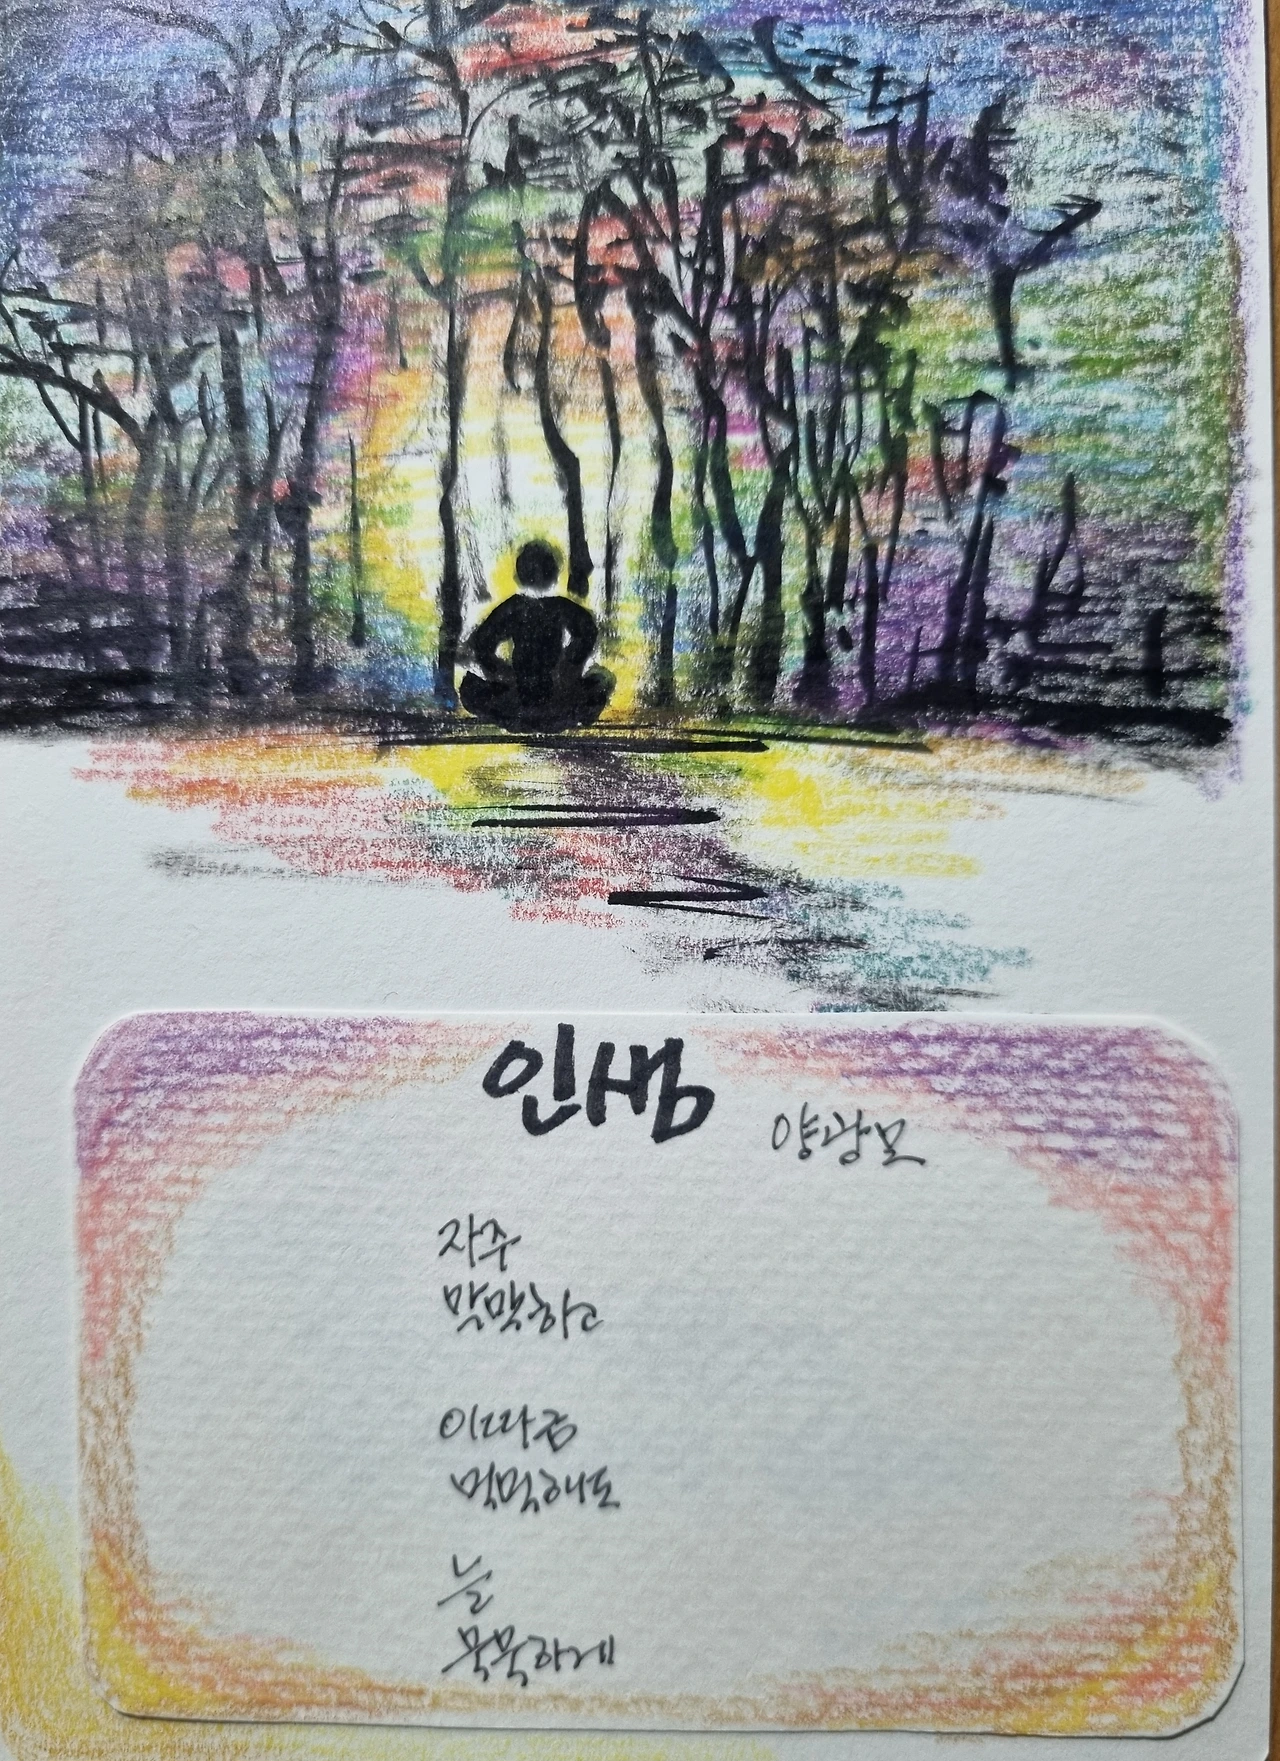 인생
양광모
자주
막막하고
이따금
먹먹해도
늘
묵묵하게